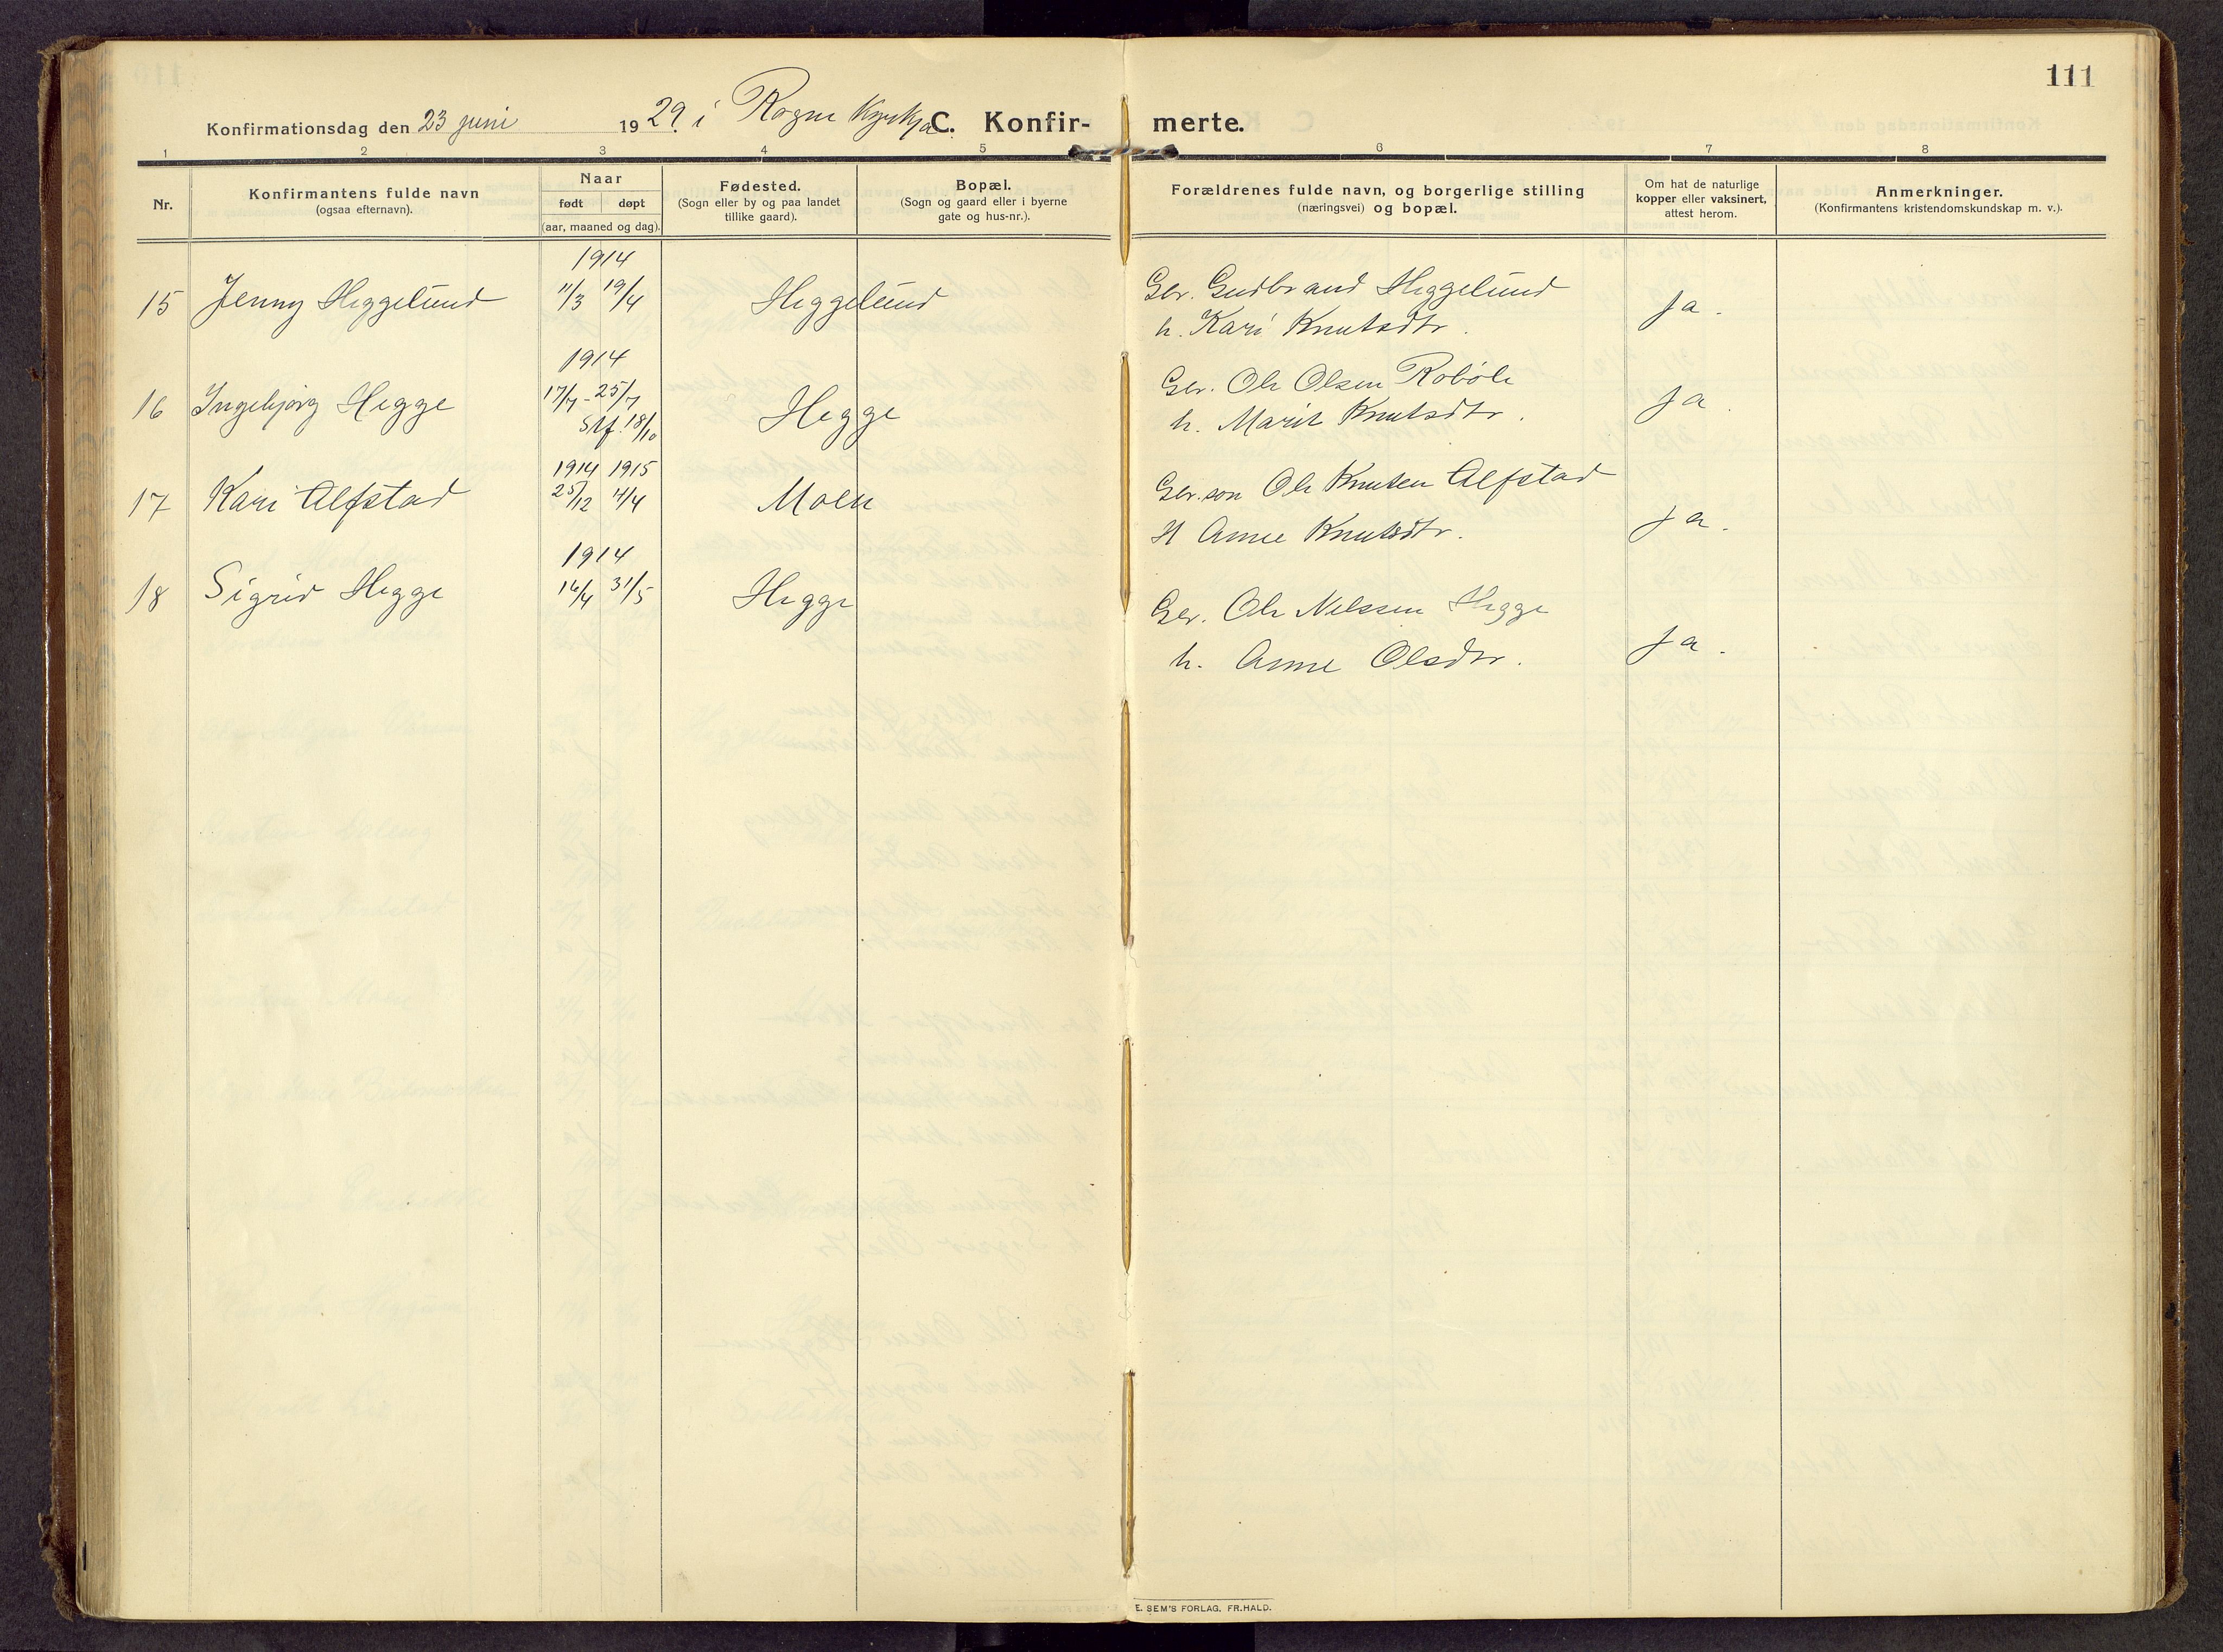 111
Konfirmationsdag den 23 juni 1929 i Rogne Kyrkja C. Konfir- merte.
1 2 3 4 5 6 7 8
Nr.
Konfirmantens fulde navn
(ogsaa efternavn).
Naar
født døpt
(aar, maaned og dag).
Fødested.
(Sogn eller by og paa landet
tillike gaard).
Bopæl.
(Sogn og gaard eller i byerne
gate og hus-nr.).
Forældrenes fulde navn, og borgerlige stilling
(næringsvei) og bopæl.
Om hat de naturlige
kopper eller vaksinert,
attest herom.
Anmerkninger.
(Konfirmantens kristendomskundskap m. v.).
1914
15 Jenny Heggelund 11/3 19/4 Heggelund Gbr. Gudbrand Heggelund Ja.
h. Kari Knutsdtr.
1914
16 Ingebjørg Hegge 17/7 - 25/7 Hegge Gbr. Ole Olsen Robøle Ja.
Stf. 18/10 h. Marit Knutsdtr.
1914 1915
17 Kari Alfstad 25/12 11/4 Moen Gbr. son Ole Knutsen Alfstad
H Anne Knutsdtr. Ja.
1914
18 Sigrid Hegge 16/4 31/5 Hegge Gbr. Ole Nelssen Hegge
h. Anne Olsdtr. Ja.
E. SEM'S FORLAG. FR.HALD.